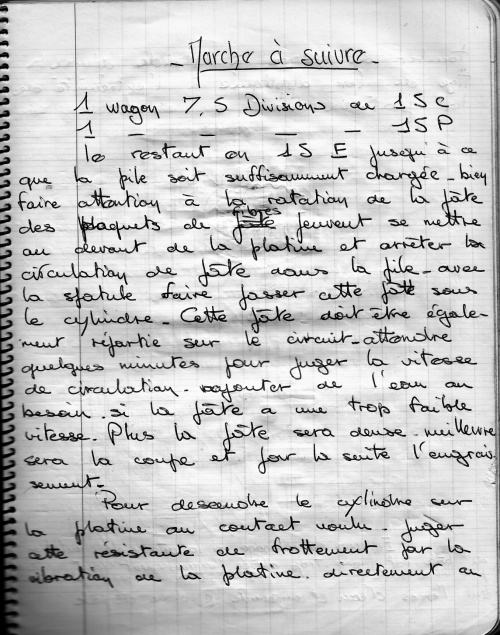 - Marche à suivre -
1 wagon 7,5 Divisions de 15 C
1 _ _ _ _ 15 P
le restant en 15 E jusqu'à ce
que la pile soit suffisamment chargée - bien
faire attention à la rotation de la pâte
des paquets de fibres peuvent se mettre
au devant de la platine et arrêter la
circulation de pâte dans la pile - avec
la spatule faire passer cette pâte sous
le cylindre - Cette pâte doit être égale-
ment répartie sur le circuit - attendre
quelques minutes pour juger la vitesse
de circulation - rajouter de l'eau au
besoin - si la pâte a une trop faible
vitesse. Plus la pâte sera dense - meilleure
sera la coupe et par la suite l'engrais
sement -
Pour descendre le cylindre sur
la platine au contact voulu - juger
cette résistante de frottement par la
vibration de la platine. directement au